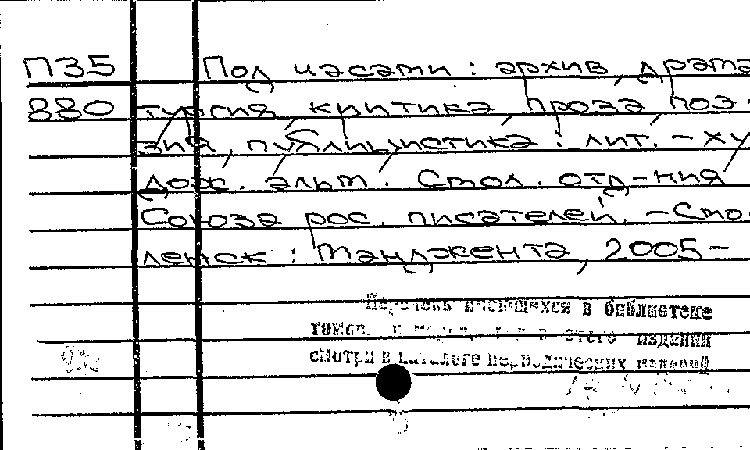 П35 Под часами: архив, драма
880 тургия, критика, проза, поэ
зия, публицистика: лит.-ху
дож. альм. Смол. отд-ния
Союза рос. писателей. - Смо
ленск: Манджента, 2005-
Перечень имеющихся в библиотеке
томов этого издания
смотри в каталоге периодических изданий